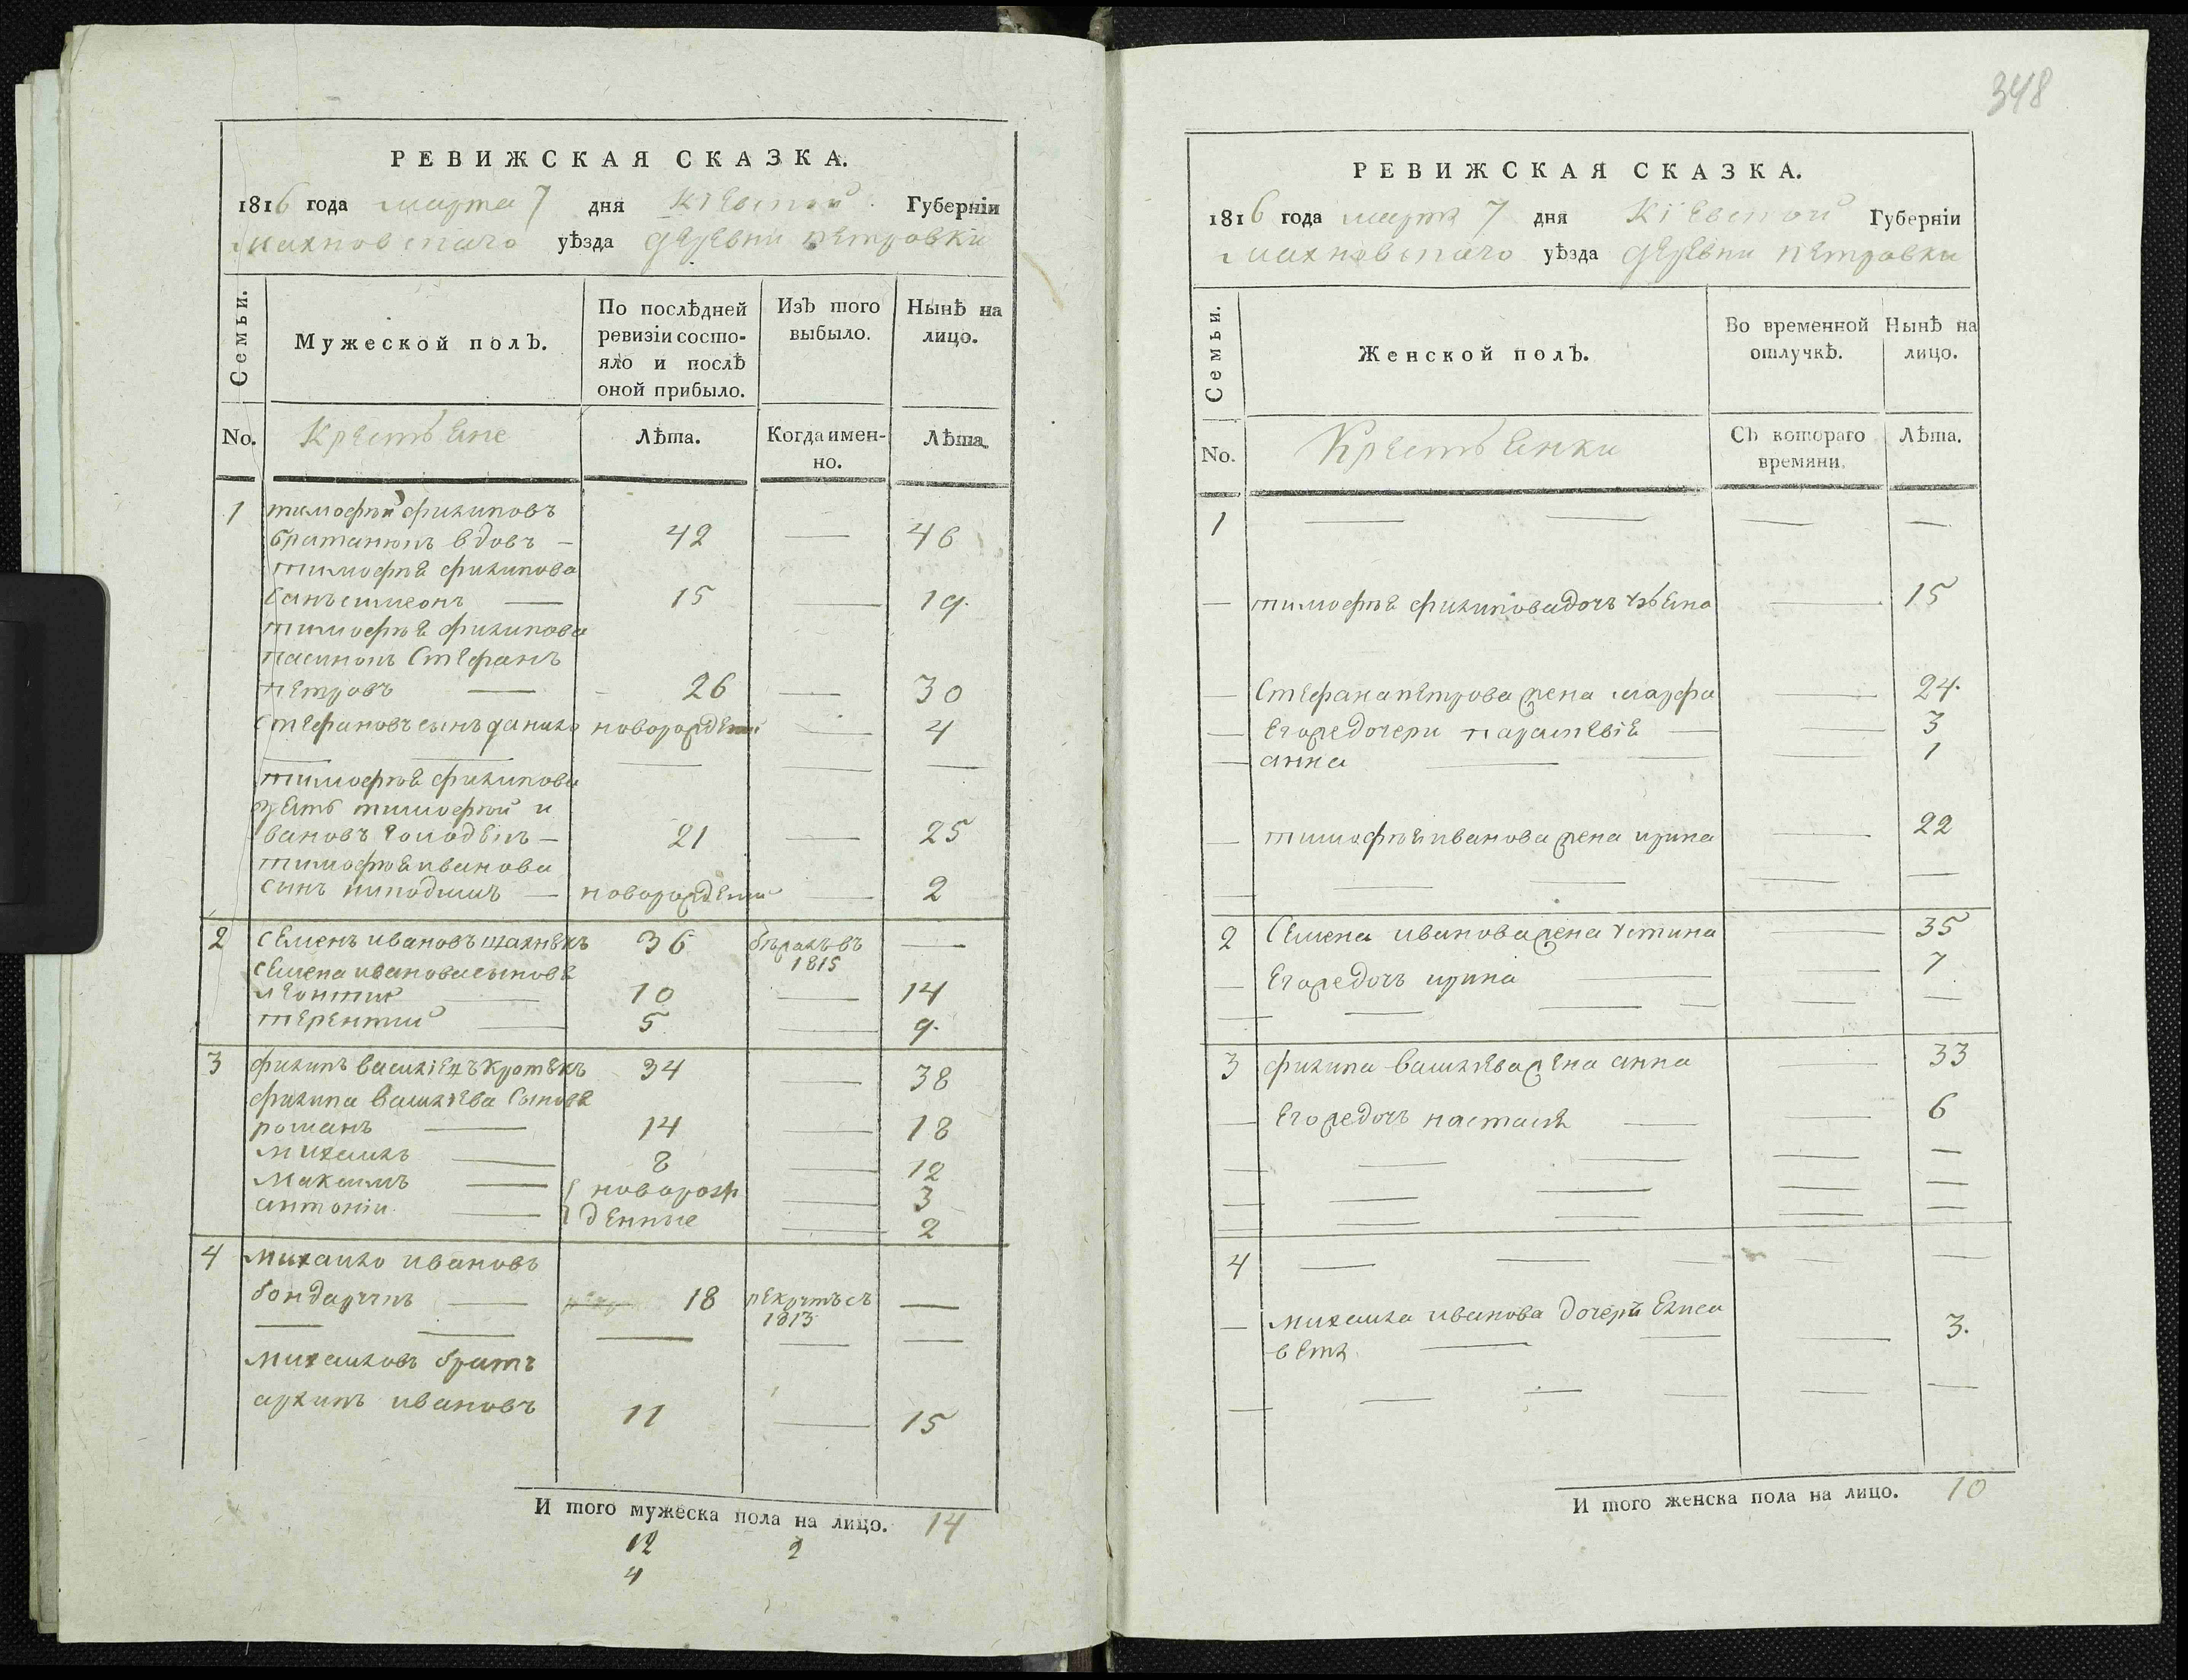 РЕВИЖСКАЯ СКАЗКА.
1816 года марта 7 дня Кіевской Губерніи
Махновскаго уѣзда деревни Петровки
Семьи.
Мужеской полЪ.
По послѣдней ревизіи состояло и послѣ оной прибыло.
ИзЪ того выбыло.
Нынѣ на лицо.
No.
Крестьяне
Лѣта.
Когда именно.
Лѣта.
1 тимофѣй филиповъ
братанюкъ вдовъ — 42 — 46
тимофѣя филипова
синъ симеонъ — 15 — 19.
тимофѣя филипова
пасинокъ Стефанъ
петровъ — 26 — 30
стефановъ сынъ данило новорожденій — 4
тимофѣя филипова
зять тимофей и
вановъ — 21 — 25
тимофѣя иванова
синъ никодимъ — новорожденій — 2
2 семенъ ивановъ 36 1815 —
семена иванова сыновя
леонтий — 10 — 14
терентий — 5. — 9.
3 филипъ 34 — 38
филипа васильева сыновя
романъ — 14 — 18
михаилъ — 8 — 12
максимъ — новорож — 3
антоній — денные — 2
4 михайло ивановъ
бондарчукъ — 18 рекрутъ съ 1813 —
михайловъ братъ
архипъ ивановъ 11 — 15
И того мужеска пола на лицо. 14
12 2
4
348
РЕВИЖСКАЯ СКАЗКА.
1816 года марта 7 дня Кіевской Губерніи
махновскаго уѣзда деревни петровки
Семьи.
Женской полЪ.
Во временной отлучкѣ.
Нынѣ на лицо.
No.
Крестьянки
СЪ котораго времяни.
Лѣта.
1 — — — —
— тимофѣя филипова дочъ — 15
— Стефана петрова жена марфа — 24.
— Его же дочери параскевія — 3
— анна — 1
— тимофѣя иванова жена ирина — 22
2 Семена иванова жена устина — 35
— Его же дочъ ирина — 7
3 филипа васильева жена анна — 33
— Его же дочъ настася — 6
4 — — — —
— михаила иванова дочерь Елиса
ветя — 3.
И того женска пола на лицо. 10